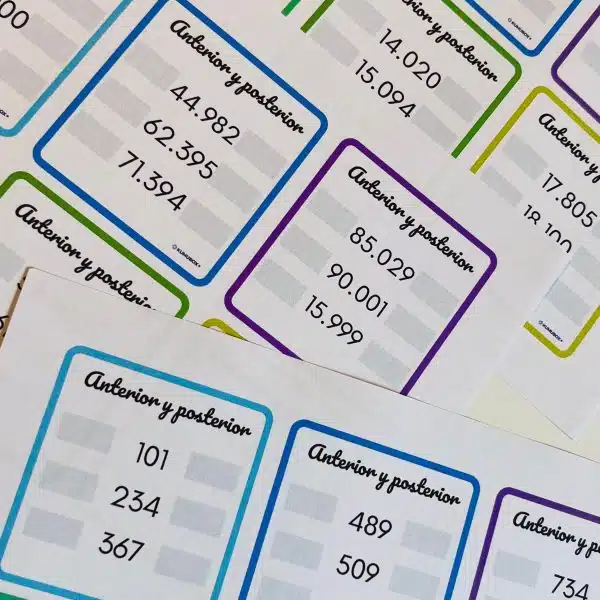 Anterior y posterior
44.982
62.395
71.394
©KUMUBOX+
14.020
15.094
Anterior y
17.805
18.100
©KUMUBOX+
Anterior y posterior
85.029
90.001
15.999
Anterior y posterior
Anterior y posterior
101
234
367
Anterior y posterior
489
509
Anterior y
734